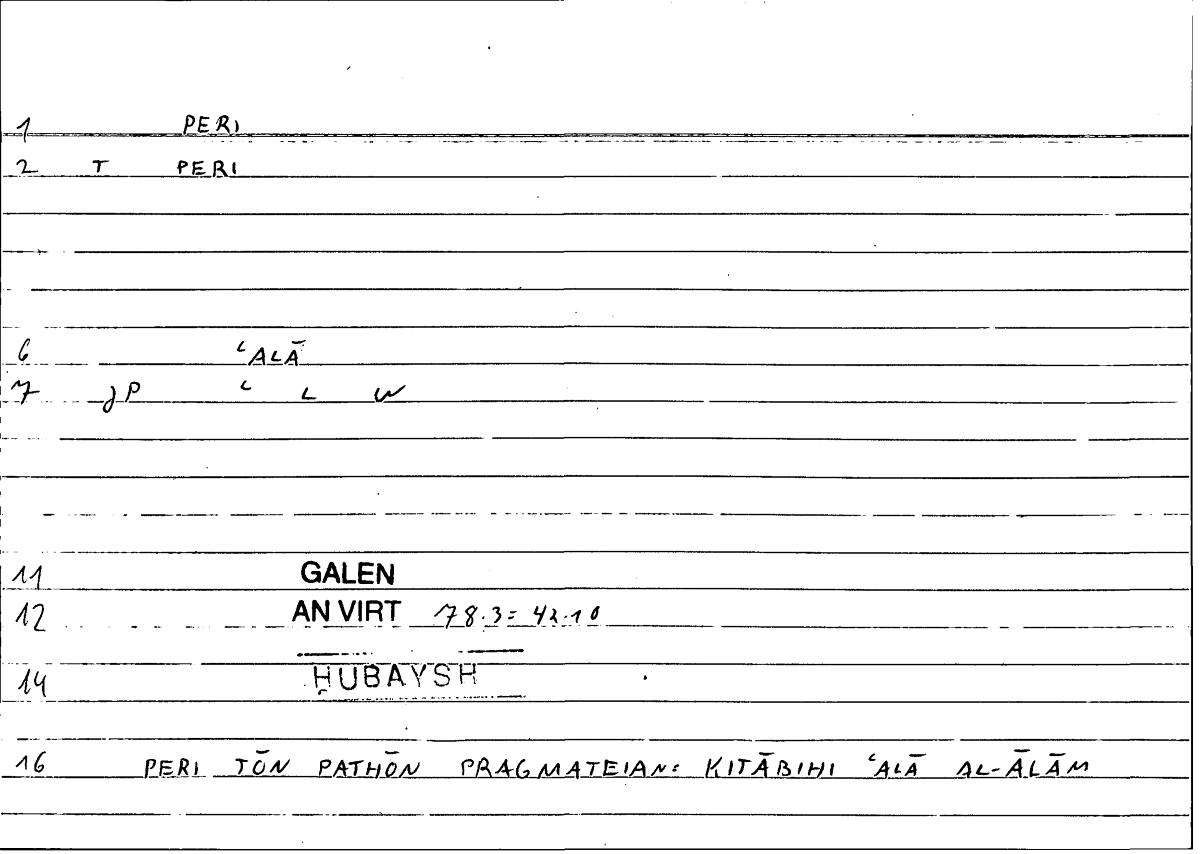 1 PERI
2 T PERI
6 ʿALĀ
7 jP ʿ L W
11 GALEN
12 AN VIRT 78.3= 42.10
14 ḤUBAYSH
16 PERI TŌN PATHŌN PRAGMATEIAN: KITĀBIHI ʿALĀ AL-ĀLĀM